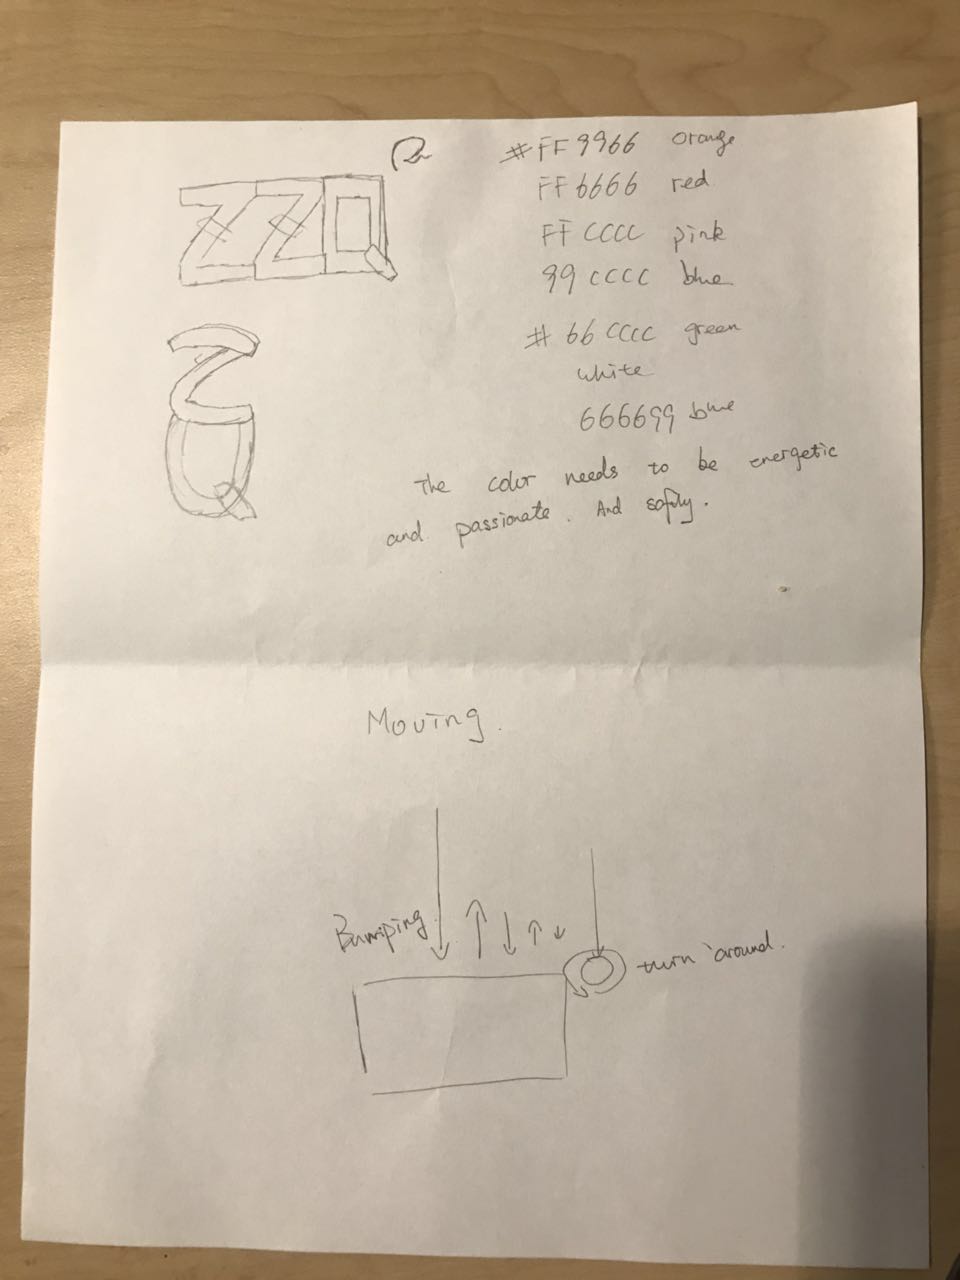 ZZQ
#FF9966 orange
FF6666 red
FFCCCC pink
99CCCC blue
#66CCCC green
white
666699 blue
ZQ
The color needs to be energetic
and passionate. And safily.
Moving.
Bumping.
turn around.